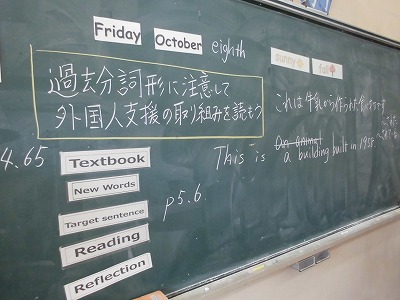 Friday October eighth
sunny fall
過去分詞形に注意して
外国人支援の取り組みを読もう
これは牛乳から作られた食べ物です
4.65
Textbook
New Words
p5.6
Target sentence
Reading
Reflection
This is An animal
a building built in 1958.